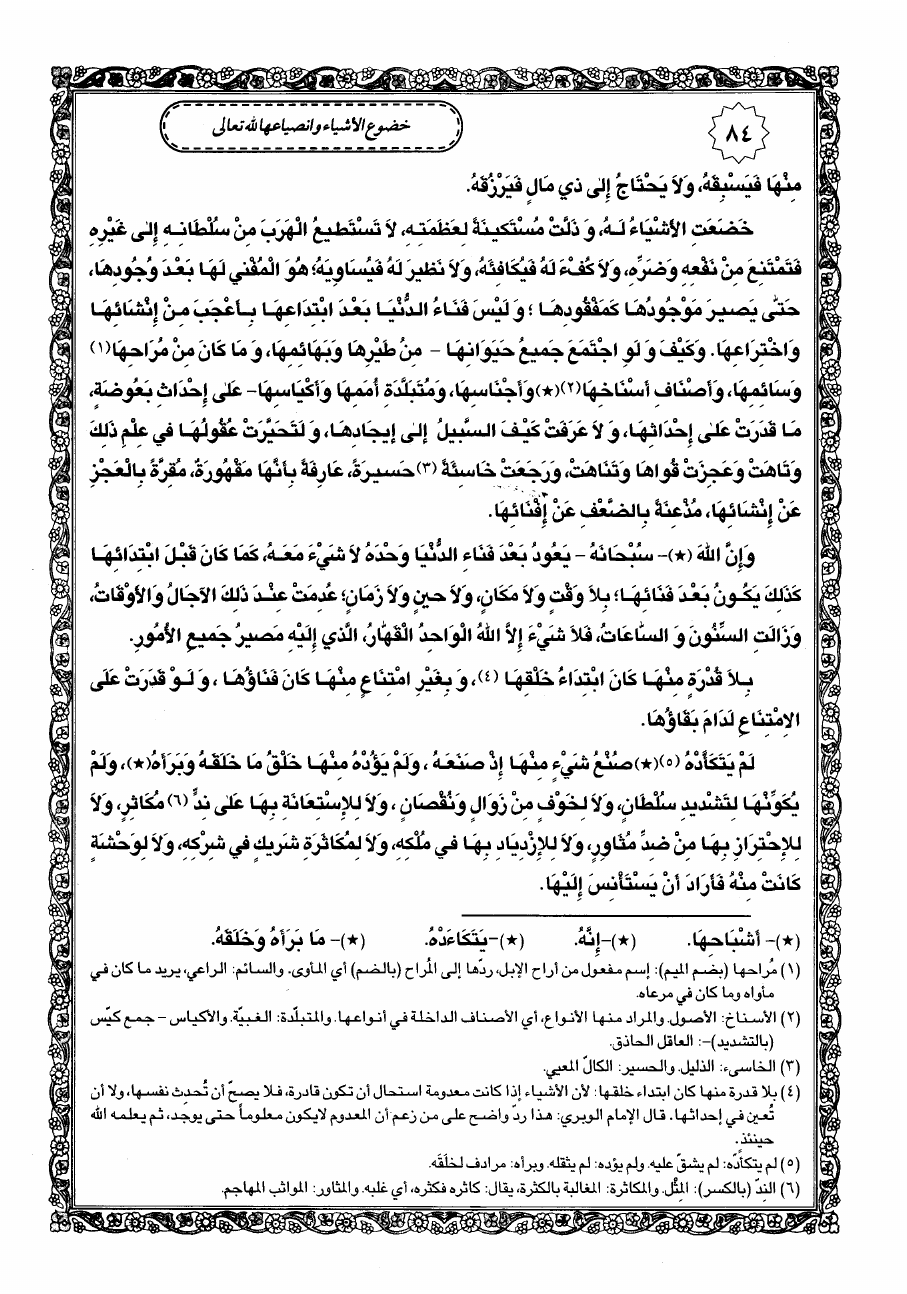 ٨٤
خضوع الأشياء وانصياعها لله تعالى
مِنْهَا فَيَسْبِقَهُ، وَلاَ يَحْتَاجُ إِلى ذي مَالٍ فَيَرْزُقَهُ.
خَضَعَتِ الأَشْيَاءُ لَهُ، وَ ذَلَّتْ مُسْتَكينَةً لِعَظَمَتِهِ، لاَ تَسْتَطيعُ الْهَرَبَ مِنْ سُلْطَانِهِ إِلى غَيْرِهِ
فَتَمْتَنِعَ مِنْ نَفْعِهِ وَضَرِّهِ، وَلاَ كُفْءَ لَهُ فَيُكَافِئَهُ، وَلاَ نَظيرَ لَهُ فَيُسَاوِيَهُ؛ هُوَ الْمُفْني لَهَا بَعْدَ وُجُودِهَا،
حَتّٰى يَصيرَ مَوْجُودُهَا كَمَفْقُودِهَا ؛ وَ لَيْسَ فَنَاءُ الدُّنْيَا بَعْدَ ابْتِدَاعِهَا بِأَعْجَبَ مِنْ إِنْشَائِهَا
وَاخْتِرَاعِهَا. وَكَيْفَ وَ لَوِ اجْتَمَعَ جَميعُ حَيَوَانِهَا - مِنْ طَيْرِهَا وَبَهَائِمِهَا، وَ مَا كَانَ مِنْ مُرَاحِهَا(١)
وَسَائِمِهَا، وَأَصْنَافِ أَسْنَاخِهَا(٢)(★)وَأَجْنَاسِهَا، وَمُتَبَلِّدَةِ أُمَمِهَا وَأَكْيَاسِهَا- عَلى إِحْدَاثِ بَعُوضَةٍ،
مَا قَدَرَتْ عَلى إِحْدَاثِهَا، وَ لاَ عَرَفَتْ كَيْفَ السَّبيلُ إِلى إيجَادِهَا، وَ لَتَحَيَّرَتْ عُقُولُهَا في عِلْمِ ذلِكَ
وَتَاهَتْ وَعَجِزَتْ قُوَاهَا وَتَنَاهَتْ، وَرَجَعَتْ خَاسِئَةً (٣)حَسيرَةً، عَارِفَةً بِأَنَّهَا مَقْهُورَةٌ، مُقِرَّةً بِالْعَجْزِ
عَنْ إِنْشَائِهَا، مُذْعِنَةً بِالضَّعْفِ عَنْ إِفْنَائِهَا.
وَإِنَّ اللهَ (★)- سُبْحَانَهُ - يَعُودُ بَعْدَ فَنَاءِ الدُّنْيَا وَحْدَهُ لاَ شَيْءَ مَعَهُ، كَمَا كَانَ قَبْلَ ابْتِدَائِهَا
كَذلِكَ يَكُونُ بَعْدَ فَنَائِهَا؛ بِلاَ وَقْتٍ وَلاَ مَكَانٍ، وَلاَ حينٍ وَلاَ زَمَانٍ؛ عُدِمَتْ عِنْدَ ذلِكَ الآجَالُ وَالأَوْقَاتُ،
وَزَالَتِ السِّنُونَ وَ السَّاعَاتُ، فَلاَ شَيْءَ إِلاَّ اللهُ الْوَاحِدُ الْقَهَّارُ، الَّذي إِلَيْهِ مَصيرُ جَميعِ الأُمُورِ.
بِلاَ قُدْرَةٍ مِنْهَا كَانَ ابْتِدَاءُ خَلْقِهَا (٤)، وَ بِغَيْرِ امْتِنَاعٍ مِنْهَا كَانَ فَنَاؤُهَا ، وَ لَوْ قَدَرَتْ عَلَى
الاِمْتِنَاعِ لَدَامَ بَقَاؤُهَا.
لَمْ يَتَكَأَّدْهُ (٥)(★)صُنْعُ شَيْءٍ مِنْهَا إِذْ صَنَعَهُ ، وَلَمْ يَؤُدْهُ مِنْهَا خَلْقُ مَا خَلَقَهُ وَبَرَأَهُ(★)، وَلَمْ
يُكَوِّنْهَا لِتَشْديدِ سُلْطَانٍ، وَلاَ لِخَوْفٍ مِنْ زَوَالٍ وَنُقْصَانٍ ، وَلاَ لِلاِسْتِعَانَةِ بِهَا عَلى نِدٍّ (٦) مُكَاثِرٍ، وَلاَ
لِلاِحْتِرَازِ بِهَا مِنْ ضِدٍّ مُثَاوِرٍ، وَلاَ لِلاِزْدِيَادِ بِهَا في مُلْكِهِ، وَلاَ لِمُكَاثَرَةِ شَريكٍ في شِرْكِهِ، وَلاَ لِوَحْشَةٍ
كَانَتْ مِنْهُ فَأَرَادَ أَنْ يَسْتَأْنِسَ إِلَيْهَا.
(★)- أَشْبَاحِهَا. (★)-إِنَّهُ. (★)-يَتَكَاءَدْهُ. (★)- مَا بَرَأَهُ وَخَلَقَهُ.
(١) مُراحها (بضم الميم): إسم مفعول من أراح الإبل، ردّها إلى المُراح (بالضم) أي المأوى. والسائم: الراعي، يريد ما كان في
مأواه وما كان في مرعاه.
(٢) الأسناخ: الأصول. والمراد منها الأنواع، أي الأصناف الداخلة في أنواعها. والمتبلّدة: الغبيّة. والأكياس - جمع كيّس
(بالتشديد)-: العاقل الحاذق.
(٣) الخاسىء: الذليل. والحسير: الكالّ المعيي.
(٤) بلا قدرة منها كان ابتداء خلقها: لأن الأشياء إذا كانت معدومة استحال أن تكون قادرة، فلا يصحّ أن تُحدِث نفسها، ولا أن
تُعين في إحداثها. قال الإمام الوبري: هذا ردّ واضح على من زعم أن المعدوم لايكون معلوماً حتى يوجد، ثم يعلمه الله
حينئذ.
(٥) لم يتكأّده: لم يشقّ عليه. ولم يؤده: لم يثقله. وبرأه: مرادف لخلَقَه.
(٦) الندّ (بالكسر): المِثْل. والمكاثرة: المغالبة بالكثرة، يقال: كاثره فكثره، أي غلبه. والمثاور: المواثب المهاجم.